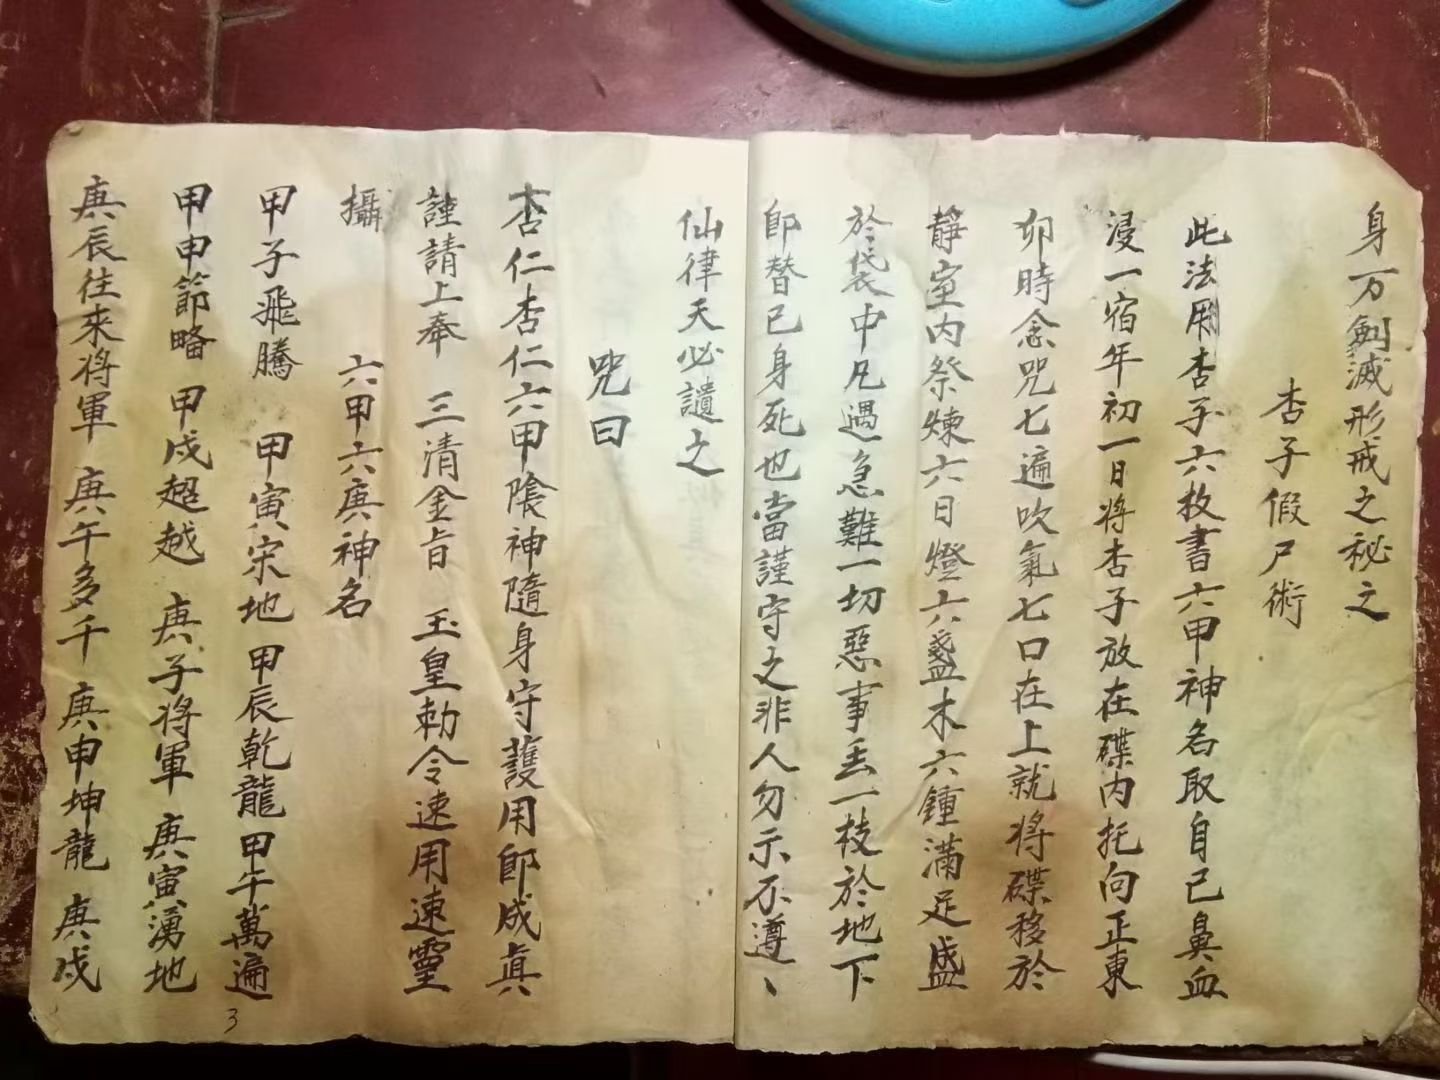 身万劍滅形戒之秘之
杏子假尸術
此法用杏子六枚書六甲神名取自己鼻血
浸一宿年初一日將杏子放在碟內托向正東
卯時念咒七遍吹氣七口在上就將碟移於
靜室內祭煉六日燈六盞木六鍾滿足盛
於袋中凡遇急難一切惡事丟一枝於地下
即替已身死也當謹守之非人勿示不遵丶
仙律天必譴之
咒曰
杏仁杏仁六甲陰神隨身守護用即成眞
謹請上奉 三清金旨 玉皇勅令速用速靈
攝 六甲六庚神名
甲子飛騰 甲寅宗地 甲辰乾龍 甲午萬遍
甲申節略 甲戍超越 庚子將軍 庚寅湧地
庚辰往來將軍 庚午多千 庚申坤龍 庚戍
3